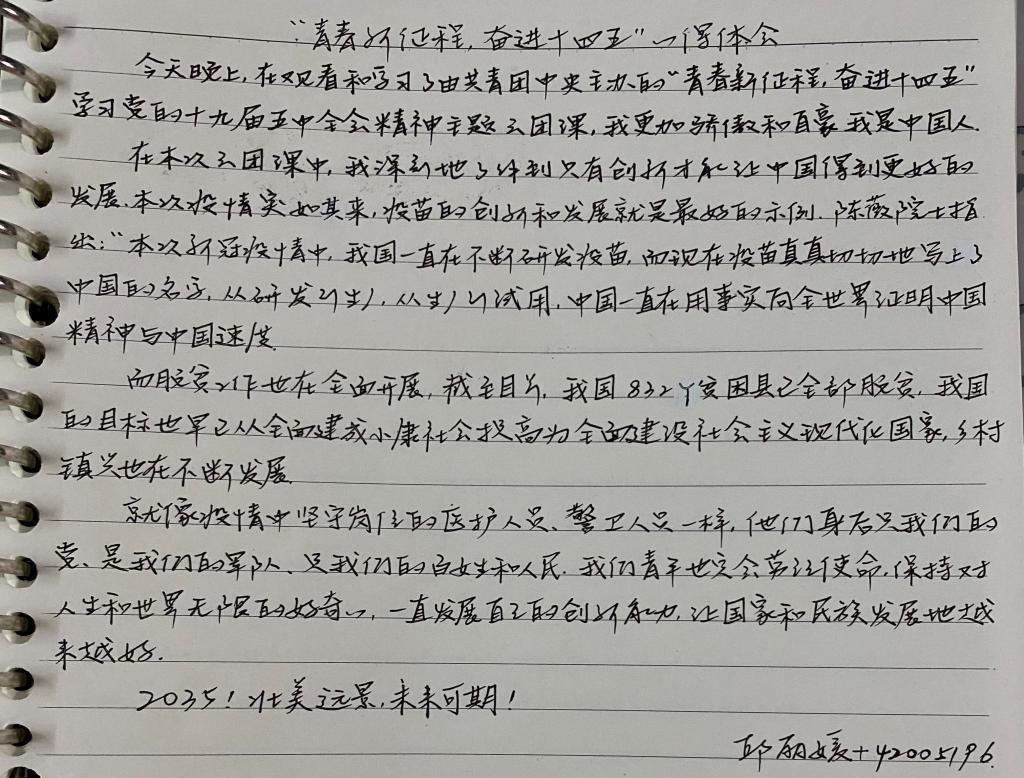 “青春新征程，奋进十四五”心得体会
今天晚上，在观看和学习了由共青团中央主办的“青春新征程，奋进十四五”
学习党的十九届五中全会精神主题云团课，我更加骄傲和自豪我是中国人．
在本次云团课中，我深刻地了解到只有创新才能让中国得到更好的
发展．本次疫情突如其来，疫苗的创新和发展就是最好的示例．陈薇院士指
出：“本次新冠疫情中，我国一直在不断研发疫苗，而现在疫苗真真切切地写上了
中国的名字，从研发到生产，从生产到试用，中国一直在用事实向全世界证明中国
精神与中国速度．
而脱贫工作也在全面开展，截至目前，我国832个贫困县已全部脱贫，我国
的目标也早已从全面建成小康社会提高为全面建设社会主义现代化国家，乡村
镇兴也在不断发展．
就像疫情中坚守岗位的医护人员、警卫人员一样，他们身后是我们的
党、是我们的军队、是我们的白女生和人民．我们青年也定会劳记使命，保持对
人生和世界无限的好奇心，一直发展自己的创新能力，让国家和民族发展地越
来越好．
2035！壮美远景，未来可期！
邱丽媛+42005196